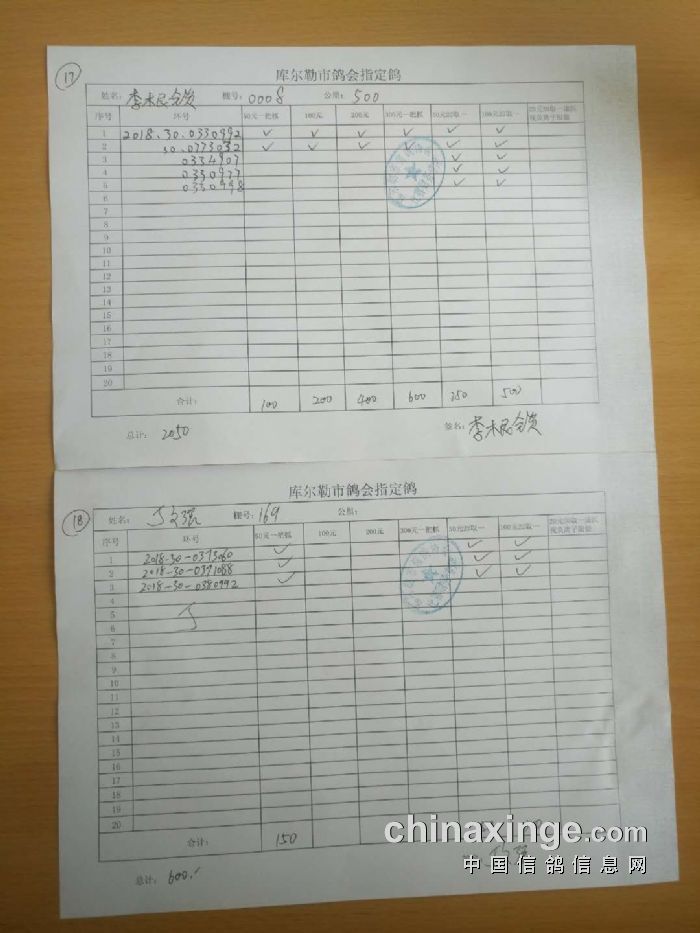 17
库尔勒市鸽会指定鸽
姓名: 李木民 棚号: 0008 公里: 500
序号 环号 50元一把抓 100元 200元 300元一把抓 50元 取一 100元 取一
1 2018.30.0330992 ✓ ✓ ✓ ✓ ✓ ✓
2 30.0773032 ✓ ✓ ✓ ✓ ✓ ✓
3 0334907 ✓ ✓
4 0330977 ✓ ✓
5 0330998 ✓ ✓
6
7
8
9
10
11
12
13
14
15
16
17
18
19
20
合计: 100 200 400 600 250 500
总计: 2050 签名: 李木民
18
库尔勒市鸽会指定鸽
姓名: 棚号: 169 公里:
序号 环号 50元一把抓 100元 200元 300元一把抓 50元 取一 100元 取一
1 2018-30-0373060 ✓ ✓ ✓
2 2018-30-0371088 ✓ ✓ ✓
3 2018-30-0380992 ✓ ✓ ✓
5
6
7
8
9
10
11
12
13
14
15
16
17
18
19
20
合计: 150
总计: 600
chinaxinge.com
中国信鸽信息网